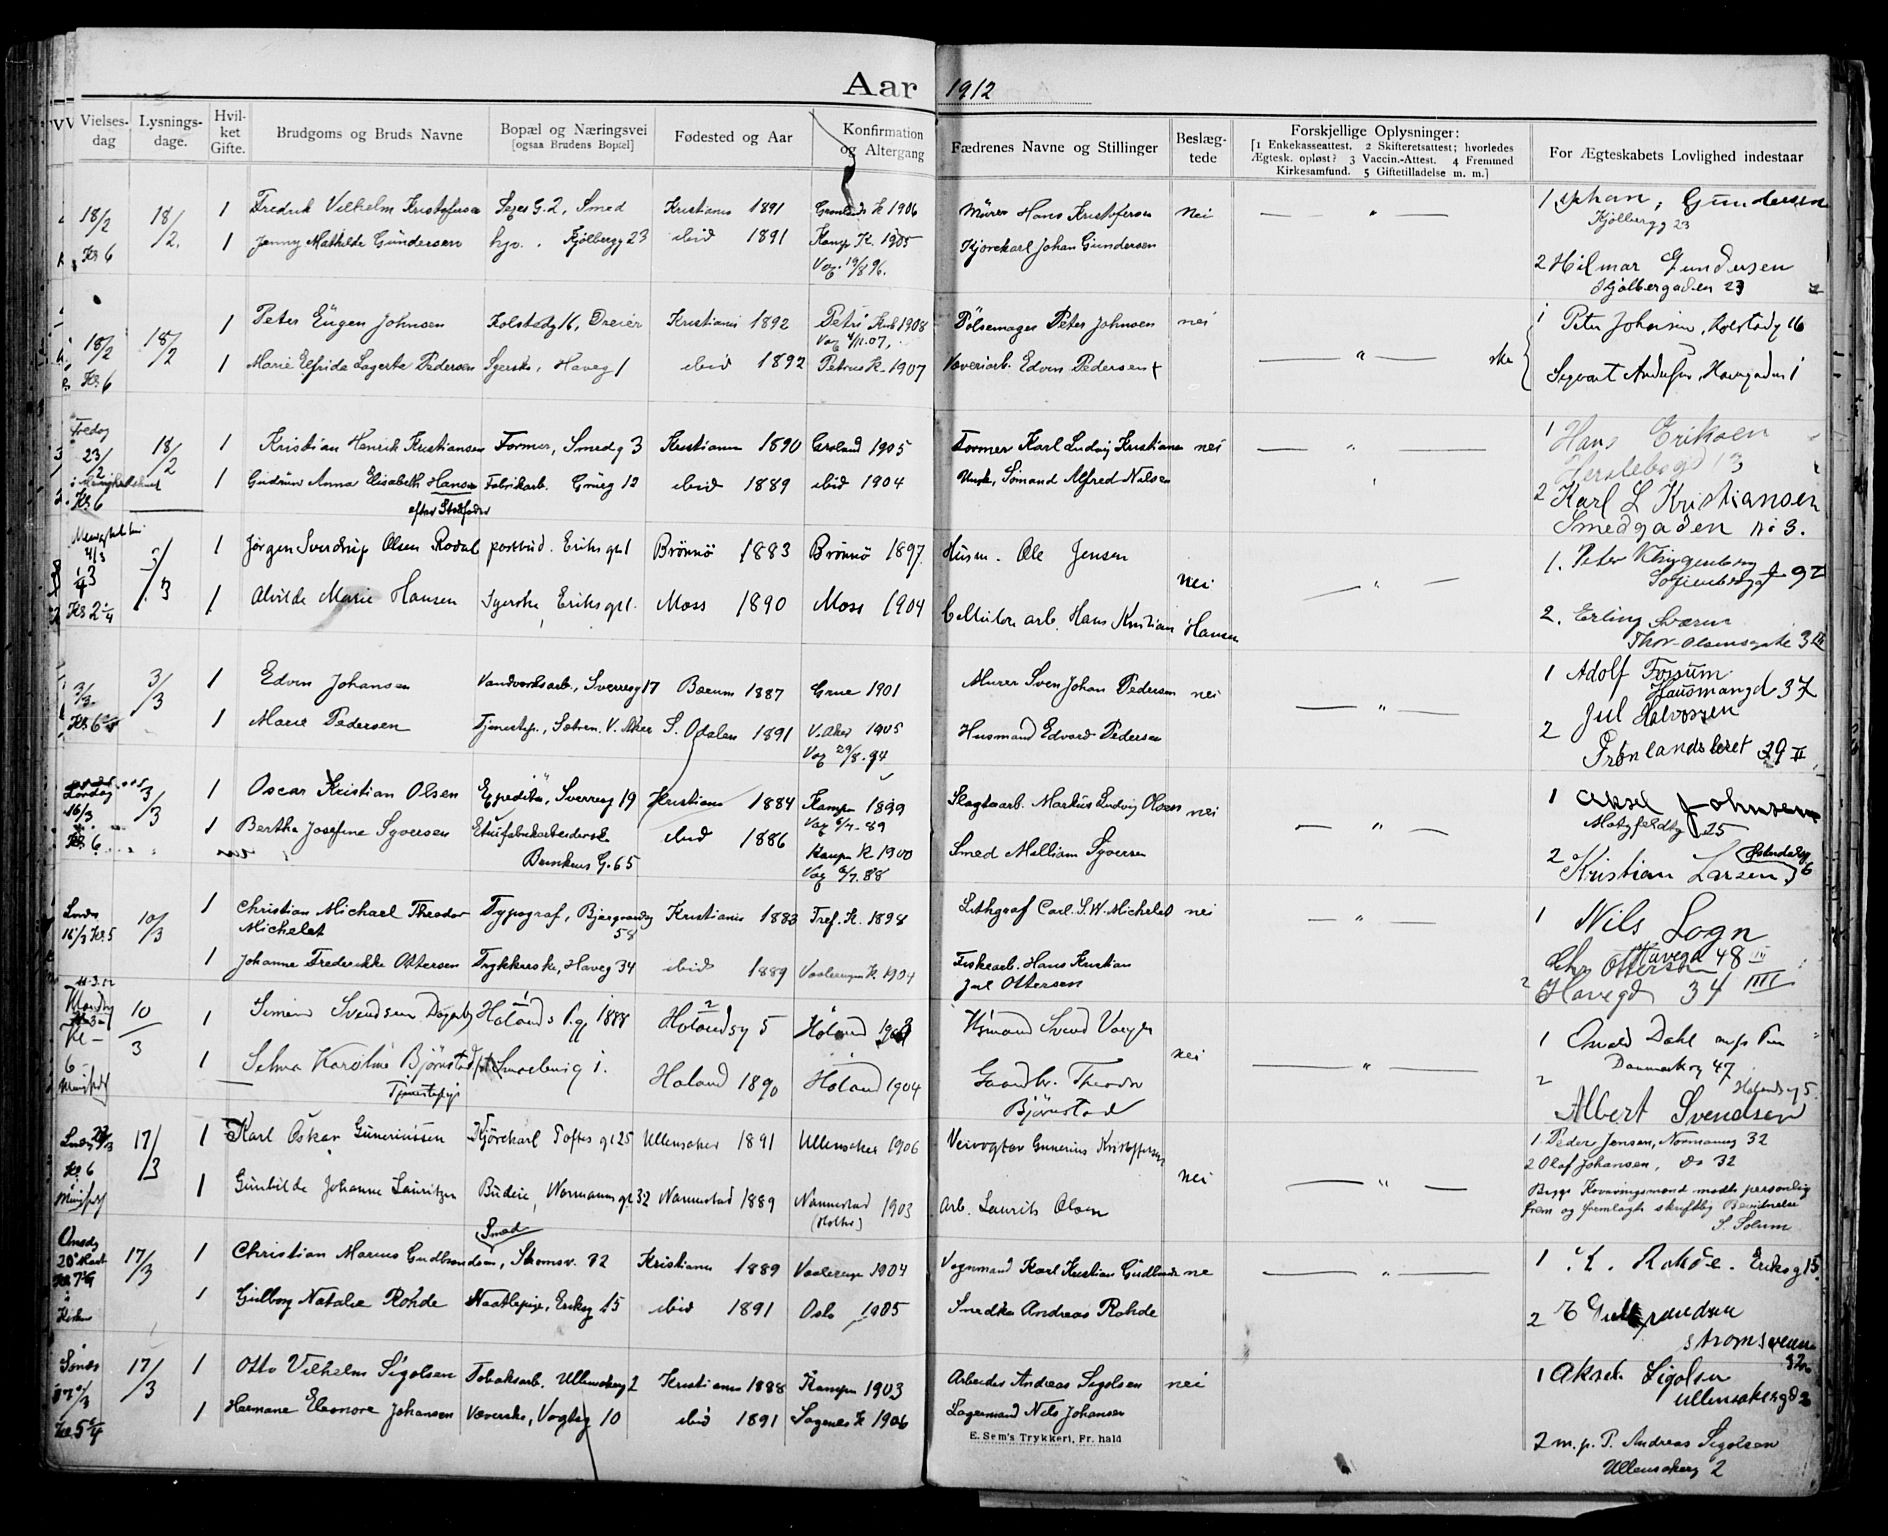 Aar 1912
Vielses-dag
Lysnings-dage.
Hvil-ket Gifte.
Brudgoms og Bruds Navne
Bopæl og Næringsvei
[ogsaa Brudens Bopæl]
Fødested og Aar
Konfirmation og Altergang
Fædrenes Navne og Stillinger
Beslæg-tede
Forskjellige Oplysninger:
[1 Enkekasseattest. 2 Skifteretsattest; hvorledes
Ægtesk. opløst? 3 Vaccin.-Attest. 4 Fremmed
Kirkesamfund. 5 Giftetilladelse m. m.]
For Ægteskabets Lovlighed indestaar
18/2 18/2. 1 Fredrik Vilhelm Kristofersen G. 2, Smed Kristiania 1891 Grønlands K 1906 Murer Hans Kristofersen Nei — " — 1 Johan, Gundersen
Kjølbergg 23
Kl 6 1 Jenny Mathilde Gundersen hjv. Kjølbergg 23 ibid 1891 Kamp. K. 1905 Kjørekarl Johan Gundersen
Vac. 19/8 96. 2 Hilmar Gundersen
Kjølbergaden 23
18/2 18/2 1 Peter Eugen Johnsen Kolstadg 16, Dreier Kristiania 1892 Petri 1908 Pølsemager Peter Johnsen nei 1 Peter Johnsen, Kolstadg 16
Kl. 6 1 Marie Elfrida Lagerta Pedersen Syerske, Haveg 1 ibid 1892 Petrus K. 1907 Væveriarb. Edvin Pedersen — " — Sigvart Andersen, Havegaden 1
Fredag 23/2 18/2 1 Kristian Henrik Kristiansen Former, Smedg 3 Kristiania 1890 Grønland 1905 Former Karl Ludvig Kristiansen nei — " — 1 Hans Eriksen
Herslebsgd 13
Kl 6 1 Gudrun Anna Elisabeth Hansen Fabrikarb. Grueg 12 ibid 1889 ibid 1904 Sømand Alfred Nilsen 2 Karl L Kristiansen
efter Stedfader Smedgaden no 3.
4/3 3/3 1 Jørgen Sverdrup Olsen Rodal postbud. Eriks gt 1 Brønnø 1883 Brønnø 1897. Husm. Ole Jensen nei — " — 1. Peter Klyngenberg
Sofienbergg 92
Kl 2 1/4 1 Alvilde Marie Hansen Syerske, Eriks gt 1. Moss 1890 Moss 1904 Cellulose arb. Hans Kristian Hansen 2. Erling Sværen
Thor Olsensgate 3 III
3/3 3/3 1 Edvin Johansen Vandverksarb., Sverresg 17 Bærum 1887 Grue 1901 Murer Sven Johan Pedersen nei — " — 1 Adolf Fossum
Hausmangd 37
Kl 6 1 Marie Pedersen Tjenestep., Sætren. V. Aker S. Odalen 1891 V. Aker 1905 Husmand Edvard Pedersen 2 Jul Halvorsen
Vac 29/8-94 Grønlandsleret 39 II
Lørdag 16/3 3/3 1 Oscar Kristian Olsen Expeditør, Sverresg 19 Kristiania 1884 Kampen 1899 Slagtearb. Martius Ludvig Olsen nei — " — 1 Aksel Johnsen
Motzfeldtg 25
Kl 6 1 Bertha Josefine Syversen Etuifabrikarbeiderske ibid 1886 Kampen K 1900 Smed William Syversen 2 Kristian Larsen
G. 65 Vac 6/7. 88
16/3 Kl. 5 10/3 1 Christian Michael Theodor Typograf, 58 Kristiania 1883 Tref. K. 1898 Lithograf Carl. S. W. Michelet nei — " — 1 Nils Logn
Michelet Havegd 48 IV
1 Johanne Fredrikke Ottersen Trykkerske, Haveg 34 ibid 1889 Vaalerengen K 1904 Fiskearb. Hans Kristian 2 Chr Ottersen
Jul Ottersen Havegd 34 IIII
Mandag 10/3 1 Simen Svendsen Høland 1888 Hølandsg 5 Høland 1903 Husmand Svend nei — " — 1 Dahl
Danmarksg 47
1 Selma Karoline Bjørnstad Smalbnig 1. Høland 1890 Høland 1904 Gaardbr. Theodor 2 Albert Svendsen
Tjenestepige Bjørnstad Hølandsg 5
23/3 17/3 1 Karl Oskar Gunerinssen Kjørekarl Toftes gt 25 Ullensaker 1891 Ullensaker 1906 Veivogter Gunerius Kristoffersen nei — " — 1. Peder Jensen, Normannsg 32
2 Olaf Johansen, Do 32
Kl 6 1 Gunhilde Johanne Lauritzen Budeie, Normanns gt. 32 Nannestad 1889 Nannestad 1903 Arb. Laurits Olsen Begge Forloveringsmænd mødte personlig
(Holter) frem og fremlagte skriftlig Bevidnelse
S. Solum
Onsdg 20de Mart 17/3 1 Christian Marius Gudbrandsen, Smed Strømsv. 32 Kristiania 1889 Vaalerengen 1904 Vognmand Karl Kristian Gudbrands nei — " — 1 K. Rohde. Eriksg 15.
Kirken 1 Gulborg Natalie Rohde Eriksg 15 ibid 1891 Oslo 1905 Smedk. Andreas Rohde 2 E Gulbrandsen
Strømsveien 32
17/3 1 Otto Vilhelm Sigolsen Tobaksarb. Ullensakerg 2 Kristiania 1888 Kampen 1903 Arbeider Andreas Sigolsen nei 1 Aksel Sigolsen
Ullensakergd 2
Kl. 5 1 Hermane Eleonore Johansen Væverske, Vogtsg 10 ibid 1891 Sagenes K 1906 Lagermand Nils Johansen
2 m. p. P. Andreas Sigolsen
Ullensakerg 2
E. Sem's Trykkeri, Fr. hald